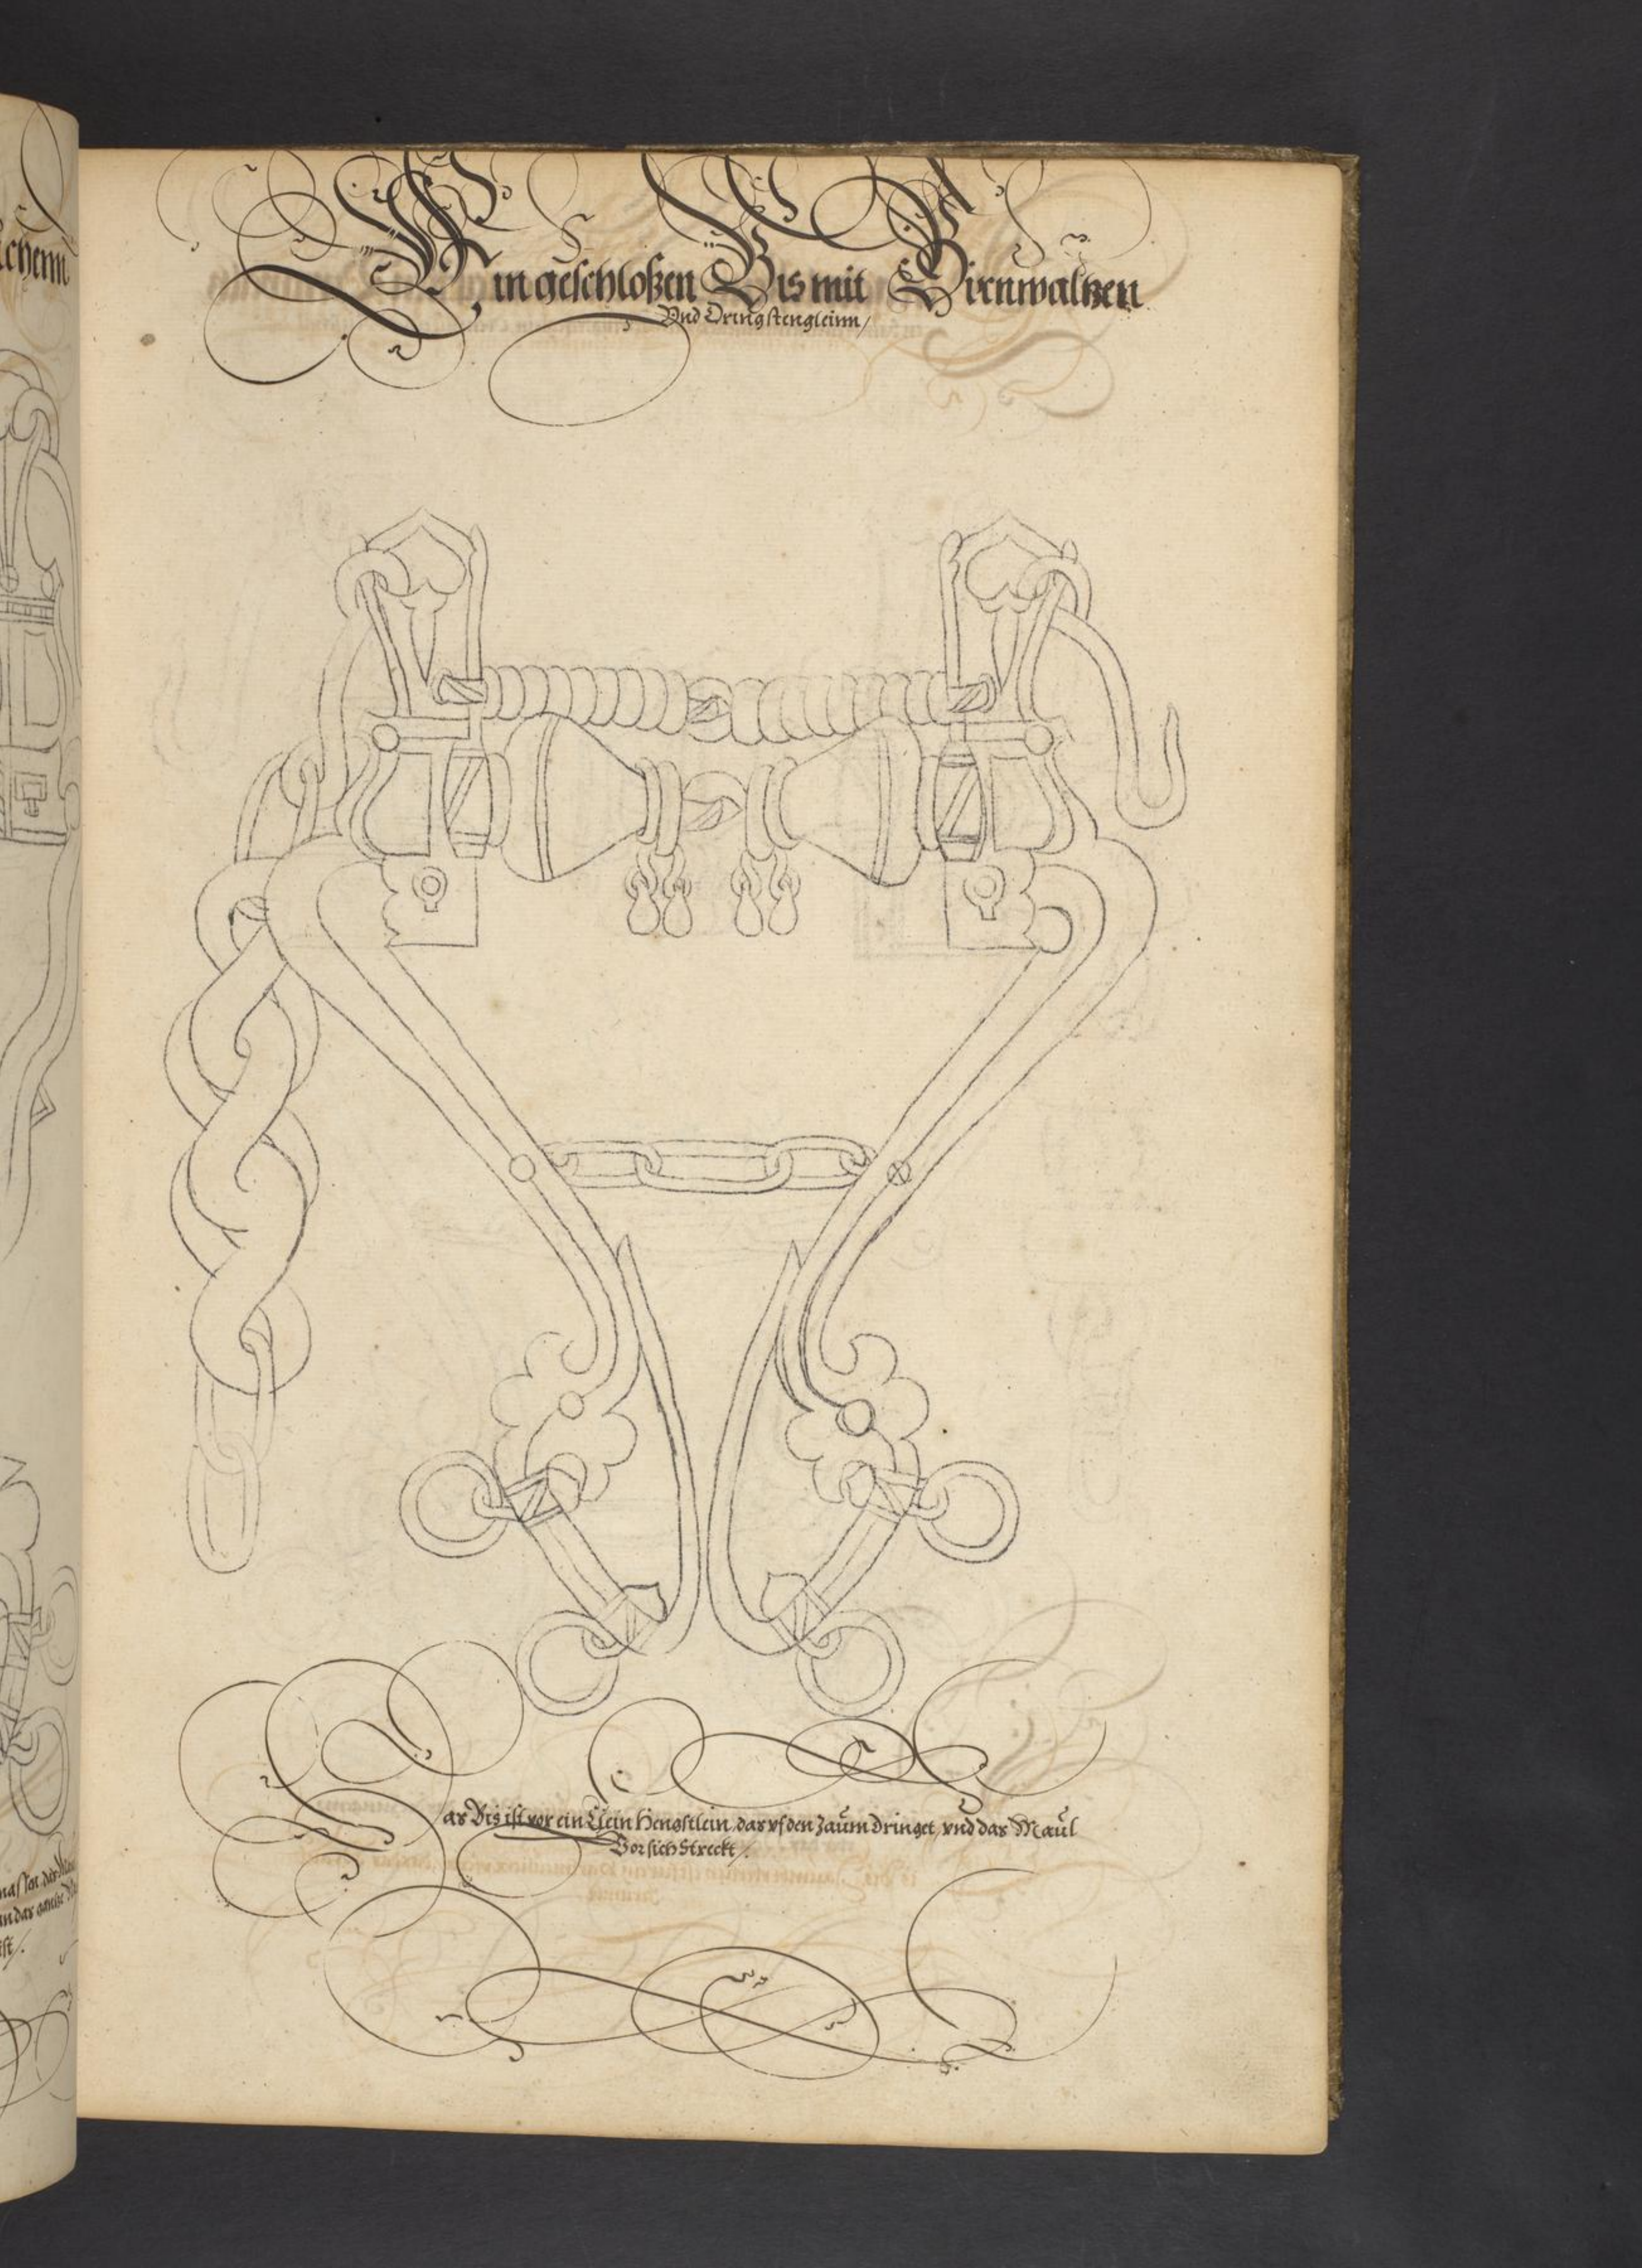 Ein geschloßen Bis mit Birnwaltzen
Vnd Dringstengleinn /
Das Bis ist vor ein klein Hengstlein, das vf den Zaum dringet, vnd das Maul
Vor sich streckt /.